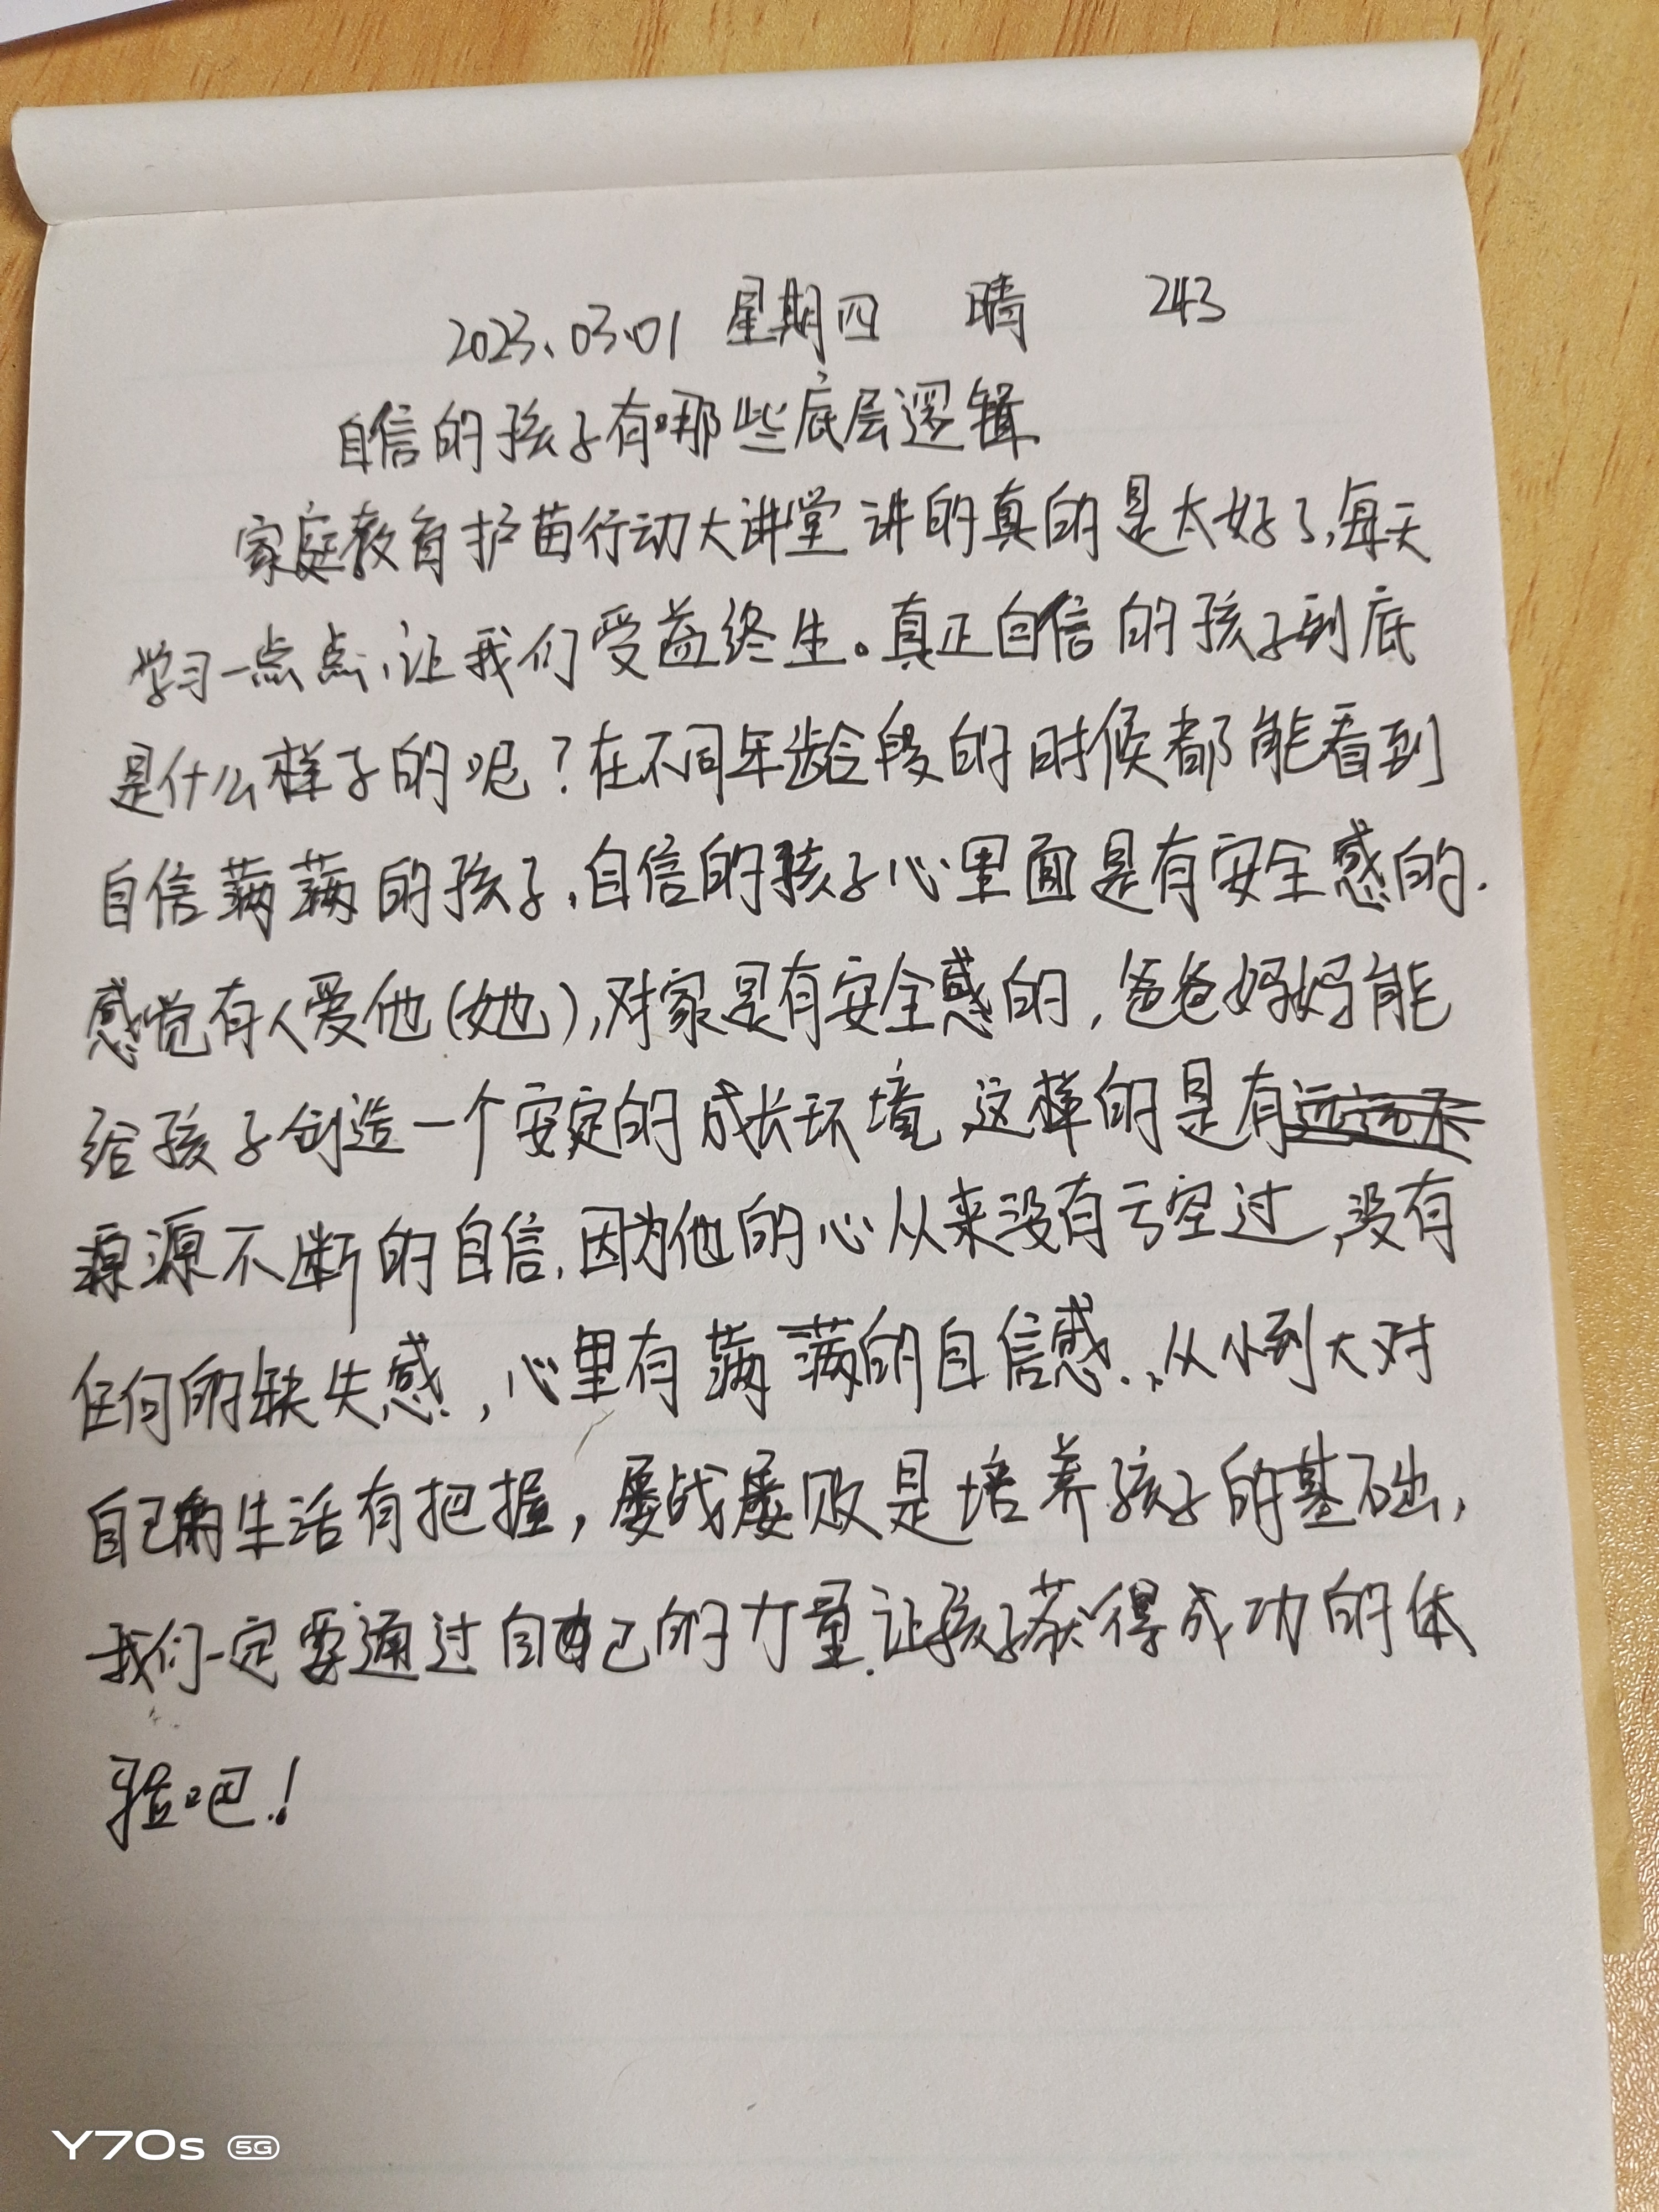 2023、03、01 星期四 晴 243
自信的孩子有哪些底层逻辑
家庭教育护苗行动大讲堂讲的真的是太好了,每天
学习一点点,让我们受益终生。真正自信的孩子到底
是什么样子的呢?在不同年龄段的时候都能看到
自信满满的孩子,自信的孩子心里面是有安全感的.
感觉有人爱他(她),对家是有安全感的,爸爸妈妈能
给孩子创造一个安定的成长环境,这样的是有
源源不断的自信,因为他的心从来没有亏空过,没有
任何的缺失感,心里有满满的自信感.,从小到大对
自己的生活有把握,屡战屡败是培养孩子的基础,
我们一定要通过自己的力量,让孩子获得成功的体
验吧!
Y70s 5G